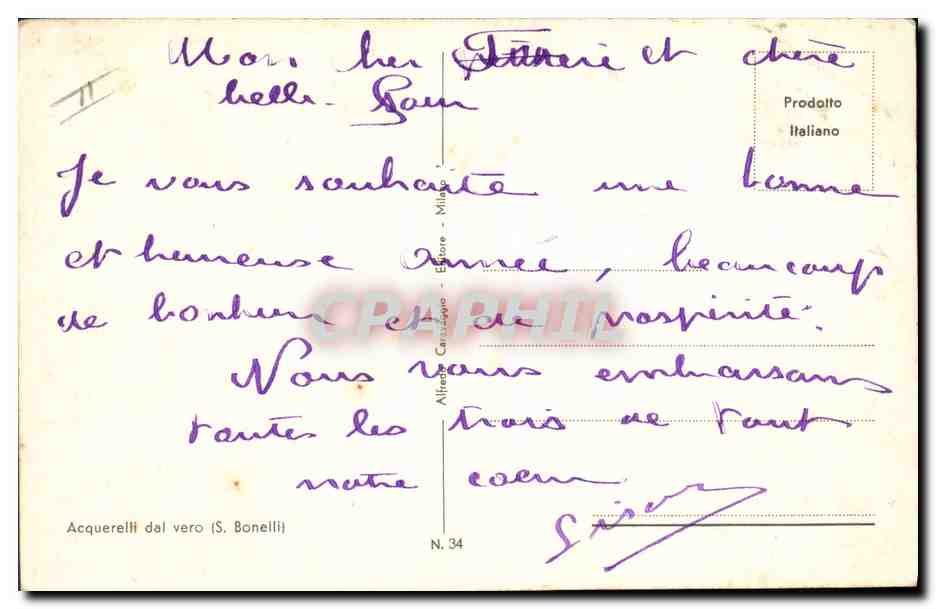 Mon cher Frère et chère
belle-Soeur
Prodotto
Italiano
Je vous souhaite une bonne
et heureuse année, beaucoup
de bonheur et de prospérité.
Nous vous embrassons
toutes les trois de tout
notre coeur
Alfredo Caravaggio - Editore - Milano
CPAPHIL
Acquerelli dal vero (S. Bonelli)
N. 34
II